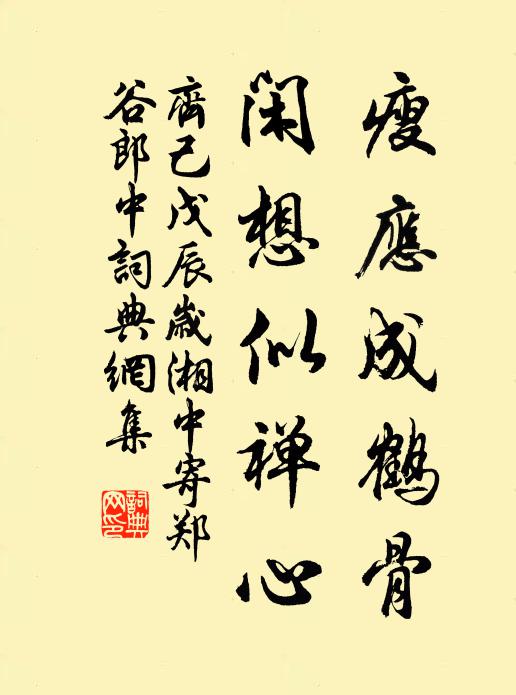 瘦應成鶴骨
閑想似禅心
齊己戊辰歲湘中寄郑
谷郎中詞典網集
詞典网印